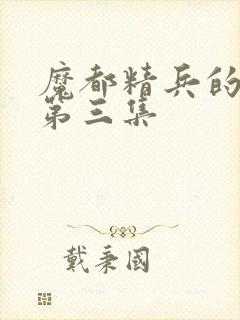 魔都精兵的
第三集
戴秉國